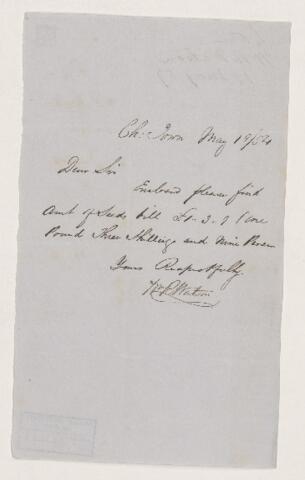 Ch: Town May 19/54
Dear Sir
Enclosed please find
Amt of Seeds bill £1-3-9 (one
Pound Three Shilling and Nine Pence
Yours Respectfully
Watson